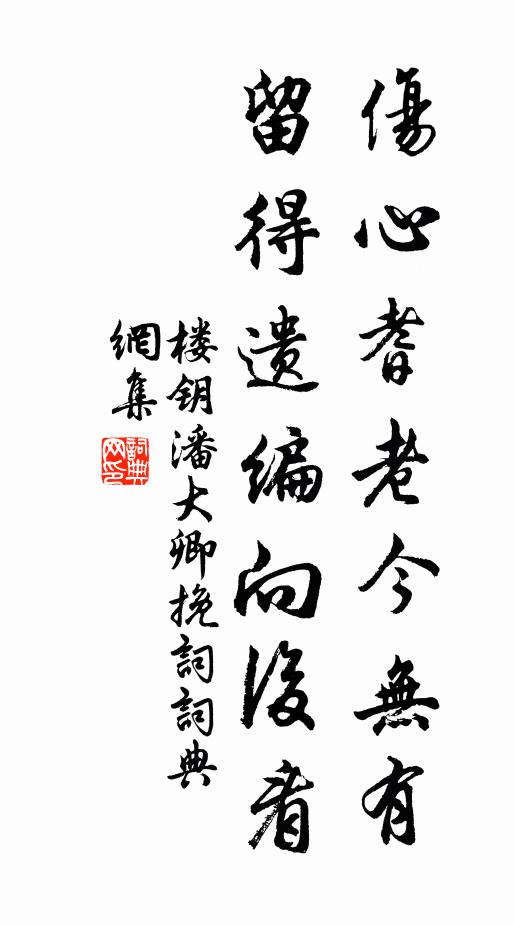 傷心耆老今無有
留得遺编向後看
楼钥潘大卿挽詞詞典
網集
詞典
网印